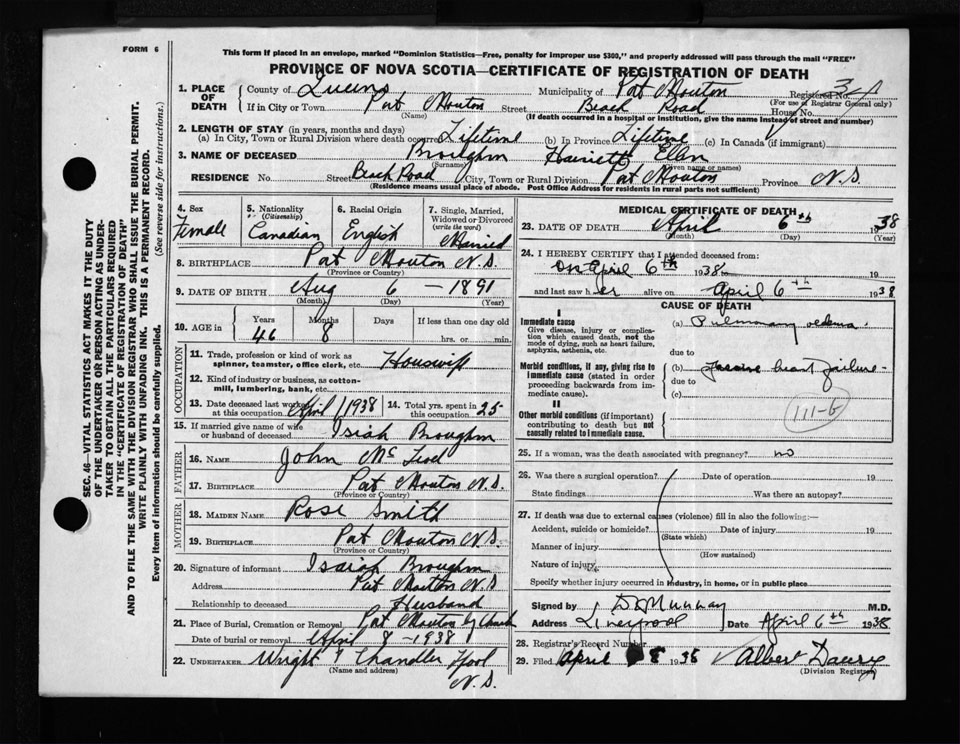 FORM 6
This form if placed in an envelope, marked "Dominion Statistics—Free, penalty for improper use $300," and properly addressed will pass through the mail "FREE"
PROVINCE OF NOVA SCOTIA—CERTIFICATE OF REGISTRATION OF DEATH
SEC. 46—VITAL STATISTICS ACT MAKES IT THE DUTY
OF THE UNDERTAKER OR PERSON ACTING AS UNDER-
TAKER TO OBTAIN ALL THE PARTICULARS REQUIRED
IN THE "CERTIFICATE OF REGISTRATION OF DEATH"
AND TO FILE THE SAME WITH THE DIVISION REGISTRAR WHO SHALL ISSUE THE BURIAL PERMIT.
WRITE PLAINLY WITH UNFADING INK. THIS IS A PERMANENT RECORD.
Every item of information should be carefully supplied. (See reverse side for instructions.)
1. PLACE OF DEATH County of Queens Municipality of Port Mouton Registered No.
(For use of Registrar General only)
If in City or Town Port Mouton Street Beach Road House No.
(Name) (If death occurred in a hospital or institution, give the name instead of street and number)
2. LENGTH OF STAY (in years, months and days)
(a) In City, Town or Rural Division where death occurred Lifetime (b) In Province Lifetime (c) In Canada (if immigrant)
3. NAME OF DECEASED Broughm Harriett Ellen
(Surname) (Given name or names)
RESIDENCE No. Street Beach Road City, Town or Rural Division Port Mouton Province N.S.
(Residence means usual place of abode. Post Office Address for residents in rural parts not sufficient)
4. Sex Female
5. Nationality (Citizenship) Canadian
6. Racial Origin English
7. Single, Married, Widowed or Divorced (write the word) Married
8. BIRTHPLACE Port Mouton N.S.
(Province or Country)
9. DATE OF BIRTH Aug 6 – 1891
(Month) (Day) (Year)
10. AGE in Years 46 Months 8 Days If less than one day old hrs. or min.
OCCUPATION
11. Trade, profession or kind of work as spinner, teamster, office clerk, etc. Housewife
12. Kind of industry or business, as cotton-mill, lumbering, bank, etc.
13. Date deceased last worked at this occupation April 1/1938 14. Total yrs. spent in this occupation 25
15. If married give name of wife or husband of deceased Isiah Broughm
FATHER
16. NAME John Mc Leod
17. BIRTHPLACE Port Mouton N.S.
(Province or Country)
MOTHER
18. MAIDEN NAME Rose Smith
19. BIRTHPLACE Port Mouton N.S.
(Province or Country)
20. Signature of informant Isaiah Broughm
Address Port Mouton N.S
Relationship to deceased Husband
21. Place of Burial, Cremation or Removal Port Mouton by Church
Date of burial or removal April 8 – 1938
22. UNDERTAKER Wright & Chandler Lpool N.S.
(Name and address)
MEDICAL CERTIFICATE OF DEATH
23. DATE OF DEATH April 6th 1938
(Month) (Day) (Year)
24. I HEREBY CERTIFY that I attended deceased from:
on April 6th 1938 19
and last saw her alive on April 6th 1938
CAUSE OF DEATH
I
Immediate cause
Give disease, injury or complication which caused death, not the mode of dying, such as heart failure, asphyxia, asthenia, etc.
(a) Pulmonary oedema
due to
Morbid conditions, if any, giving rise to immediate cause (stated in order proceeding backwards from immediate cause).
(b) Passive heart failure
due to
(c)
II
Other morbid conditions (if important) contributing to death but not causally related to immediate cause.
111-b
25. If a woman, was the death associated with pregnancy? no
26. Was there a surgical operation? Date of operation 19
State findings Was there an autopsy?
27. If death was due to external causes (violence) fill in also the following:—
Accident, suicide or homicide? Date of injury 19
(State which)
Manner of injury
(How sustained)
Nature of injury
Specify whether injury occurred in industry, in home, or in public place
Signed by M.D.
Address Liverpool Date April 6th 1938
28. Registrar's Record Number
29. Filed April 8 1938 Albert
(Division Registrar)